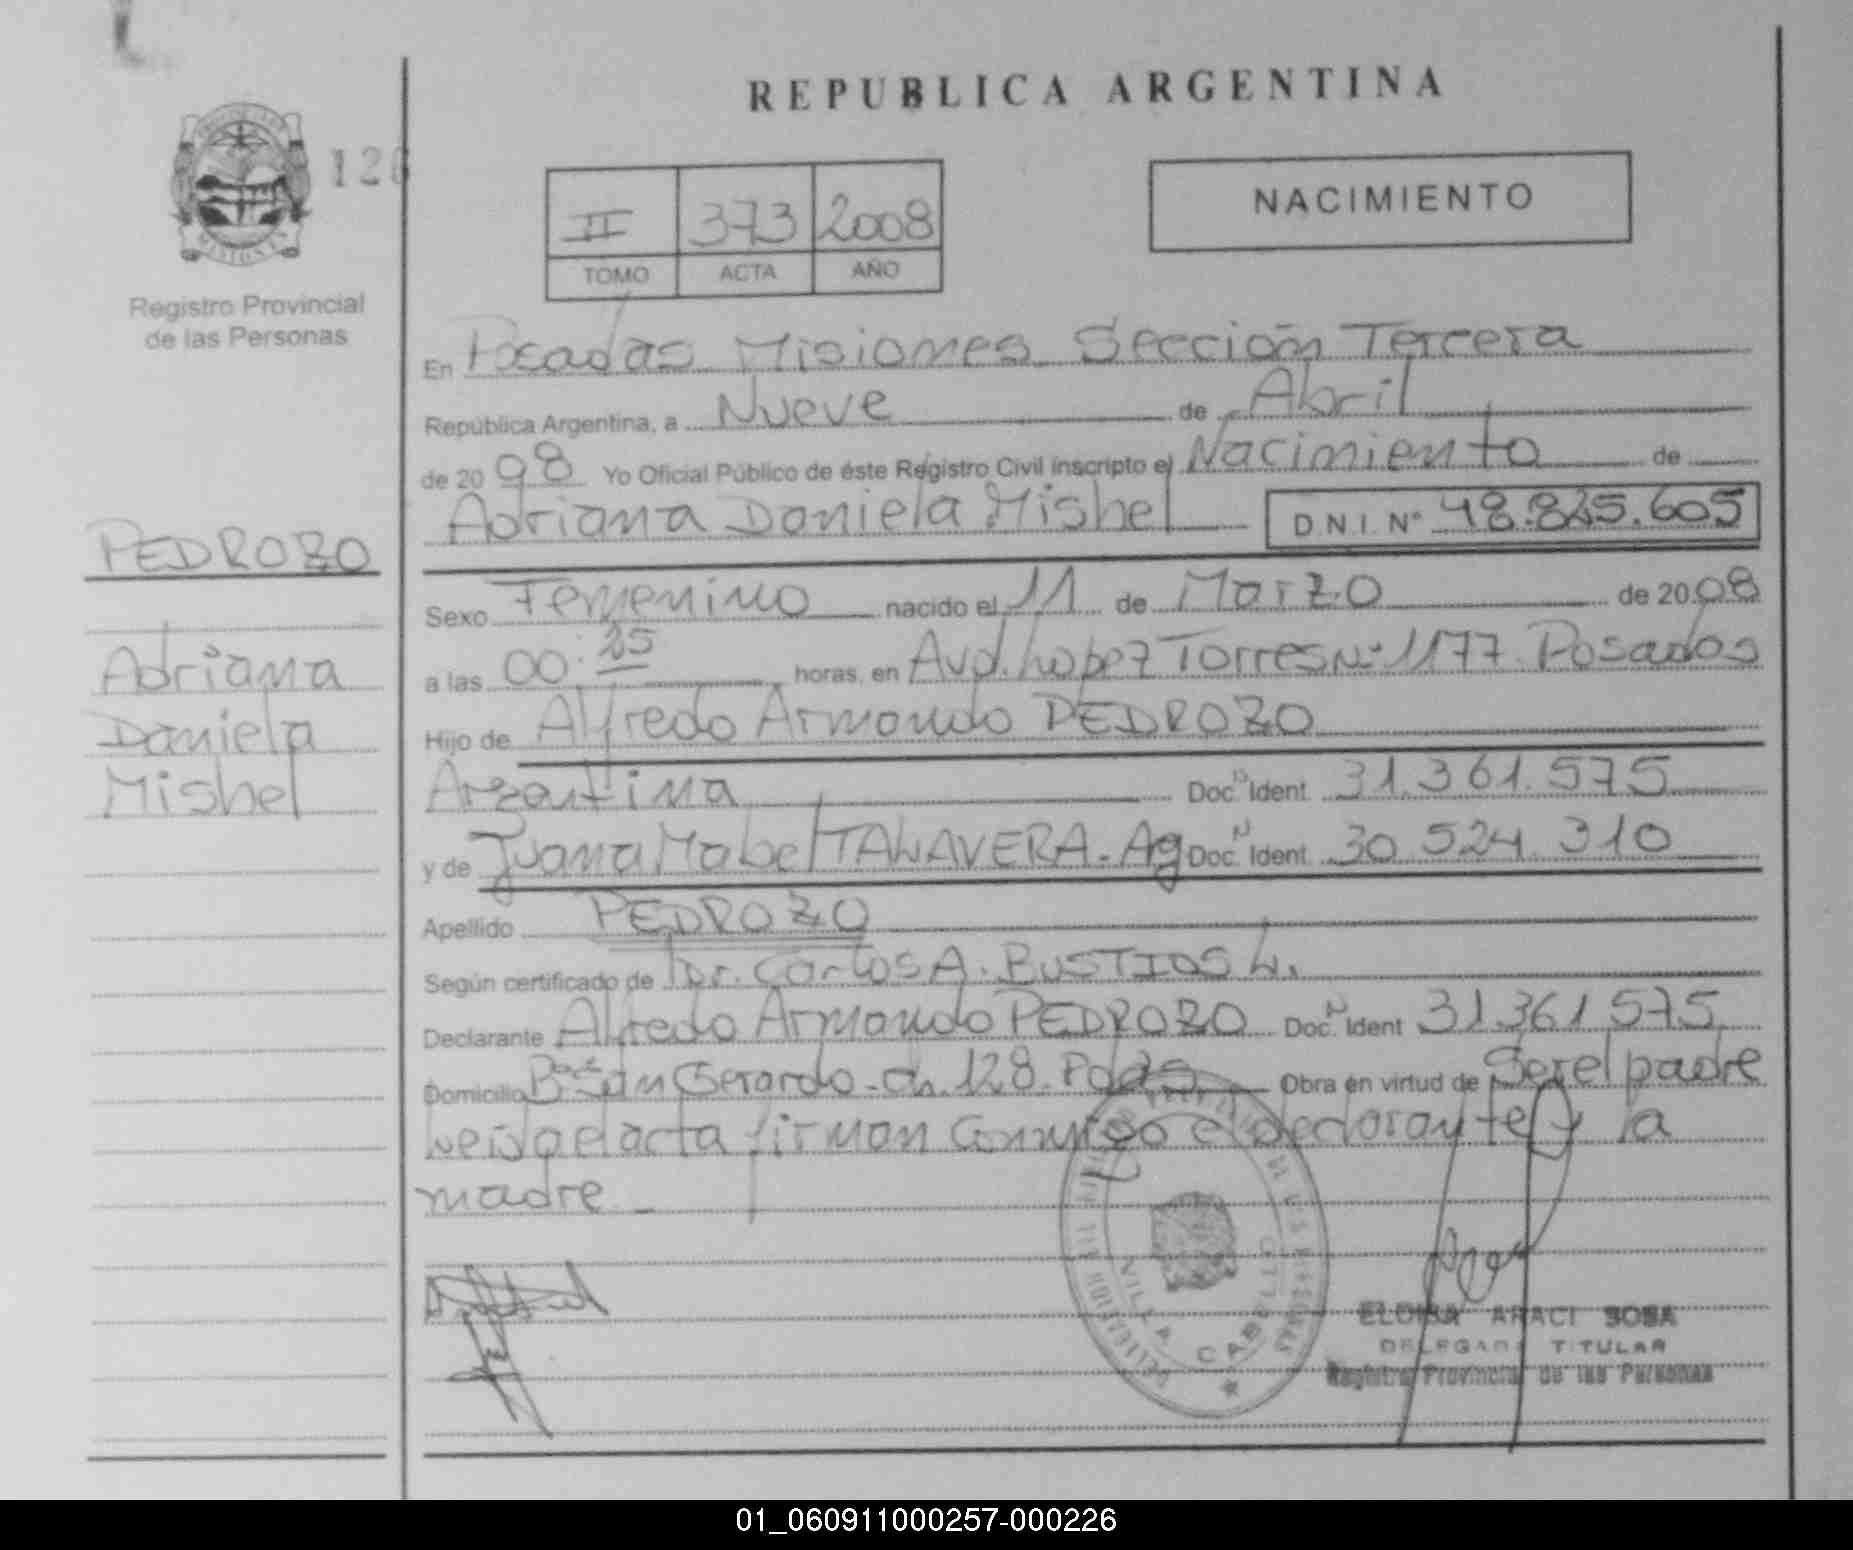 REPUBLICA ARGENTINA
NACIMIENTO
II 373 2008
TOMO ACTA AÑO
Registro Provincial
de las Personas
En Posadas Misiones Sección Tercera
República Argentina, a Nueve de Abril
de 20 08 Yo Oficial Público de éste Registro Civil inscripto el Nacimiento de
Adriana Daniela Mishel D.N.I. Nº 48.825.605
PEDROZO
Adriana
Daniela
Mishel
Sexo Femenino nacido el 11 de Marzo de 20 08
a las 00:25 horas, en Avd. Lopez Torres Nº 1177 Posadas
Hijo de Alfredo Armando PEDROZO
Argentina Doc. Ident. 31.361.575
y de Juana Mabel TALAVERA. Ag Doc. Ident. 30 524 310
Apellido PEDROZO
Según certificado de Dr. Carlos A. BUSTIOS L.
Declarante Alfredo Armando PEDROZO Doc. Ident 31.361 575
Domicilio Bº San Gerardo ch. 128 Pdas Obra en virtud de Ser el padre
acta firman Conmigo el declarante y la
madre
VILLA CABELLO
ELOISA ARACI SOSA
DELEGADA TITULAR
Registro Provincial de las Personas
01_060911000257-000226